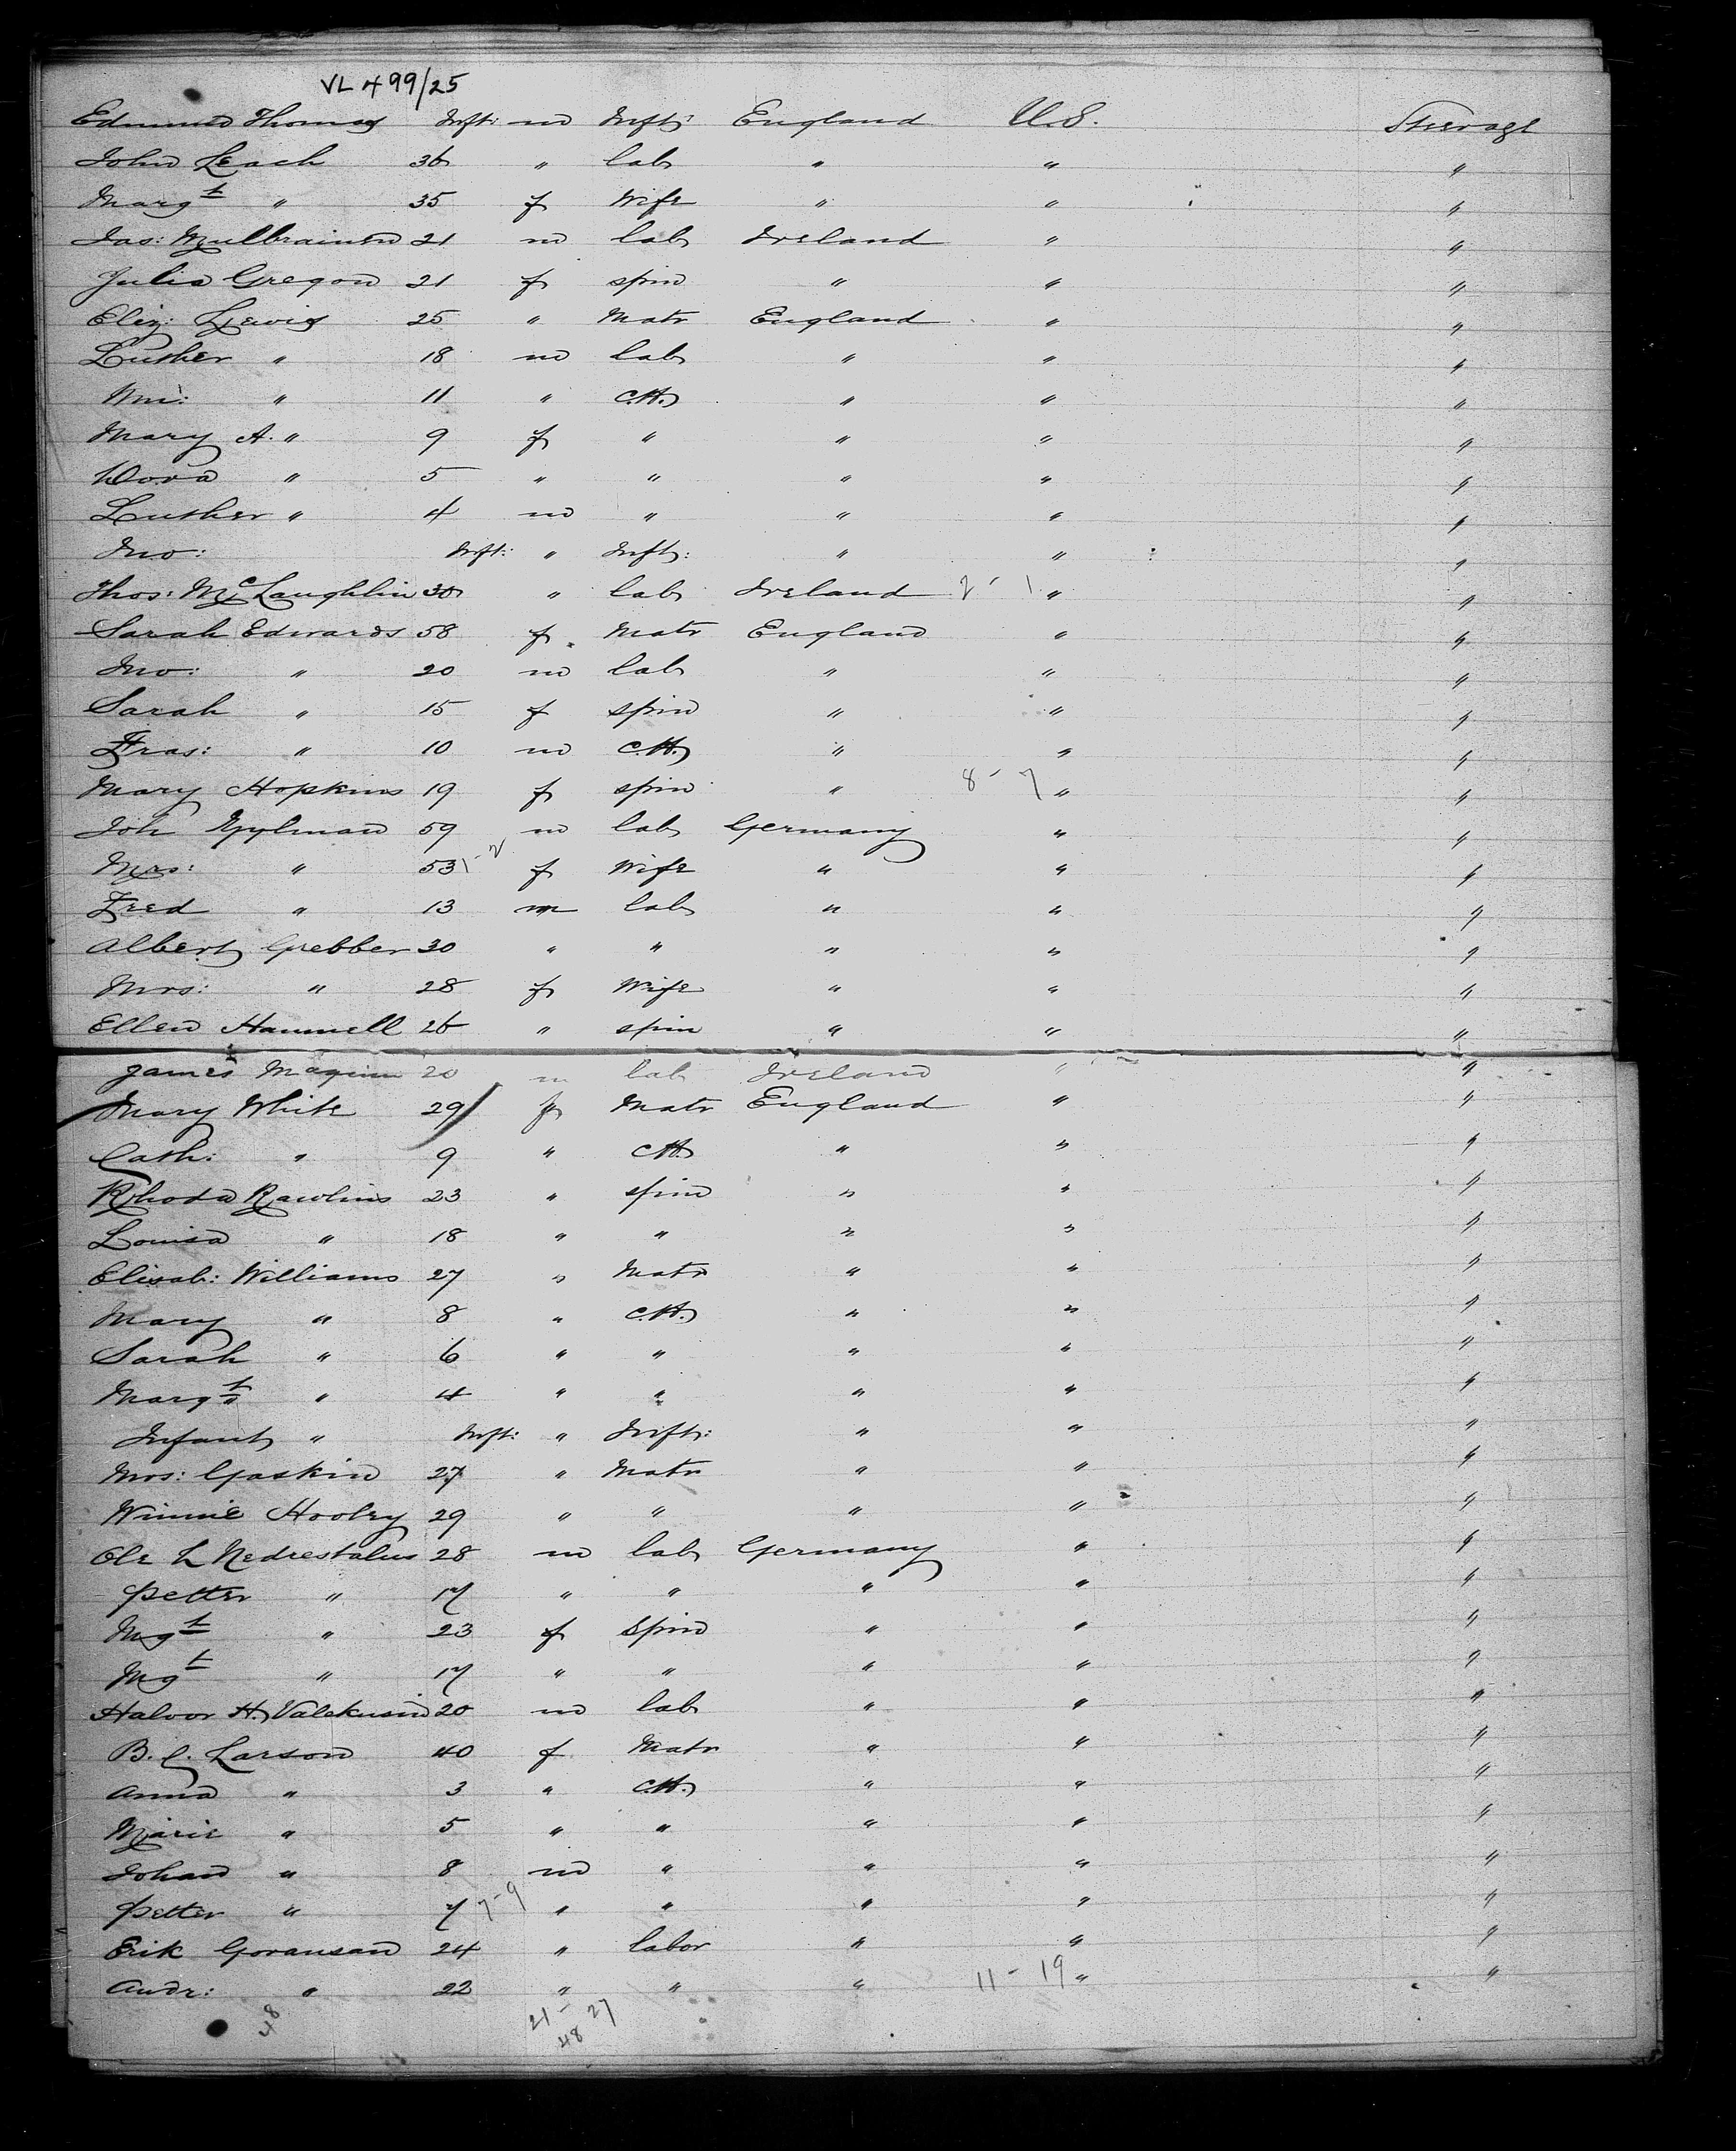 VL 499/25
Edmund Thomas Inft: m Inft: England U.S. Steerage
John Leach 36 " lab " " "
Margt " 35 f Wife " " "
Jas: Mulbrainen 21 m lab Ireland " "
Julia Gregon 21 f spin " " "
Eliz: Lewis 25 " Matr England " "
Luther " 18 m lab " " "
Wm: " 11 " c.H. " " "
Mary A. " 9 f " " " "
Dora " 5 " " " " "
Luther " 4 m " " " "
Jno: Inft: " Inft: " " "
Thos: McLaughlin 30 " lab Ireland " "
Sarah Edwards 58 f Matr England " "
Jno: " 20 m lab " " "
Sarah " 15 f spin " " "
Fras: " 10 m c.H. " " "
Mary Hopkins 19 f spin " 8-7 " "
Joh Gylman 59 m lab Germany " "
Mrs: " 53 f Wife " " "
Fred " 13 m lab " " "
Albert Grebber 30 " " " " "
Mrs: " 28 f Wife " " "
Ellen Hammell 26 " spin " " "
James Maginn 20 m lab Ireland " "
Mary White 29 f Matr England " "
Cath: " 9 " cH. " " "
Rhoda Rawlins 23 " spin " " "
Louisa " 18 " " " " "
Elisab: Williams 27 " Matr " " "
Mary " 8 " c.H. " " "
Sarah " 6 " " " " "
Margt " 4 " " " " "
Infant " Inft: " Inft: " " "
Mrs: Gaskin 27 " Matr " " "
Winnie Hooley 29 " " " " "
Ole L Nedrestalus 28 m lab Germany " "
Petter " 17 " " " " "
Mgt " 23 f spin " " "
Mgt " 17 " " " " "
Halvor H. 20 m lab " " "
B. C. Larson 40 f Matr " " "
Anna " 3 " c.H. " " "
Marie " 5 " " " " "
Johan " 8 m " " " "
Petter " 7 7-9 " " " " "
Erik Goransan 24 " labor " " "
Andr: " 22 " " " 11-19 " "
48 21-27
48